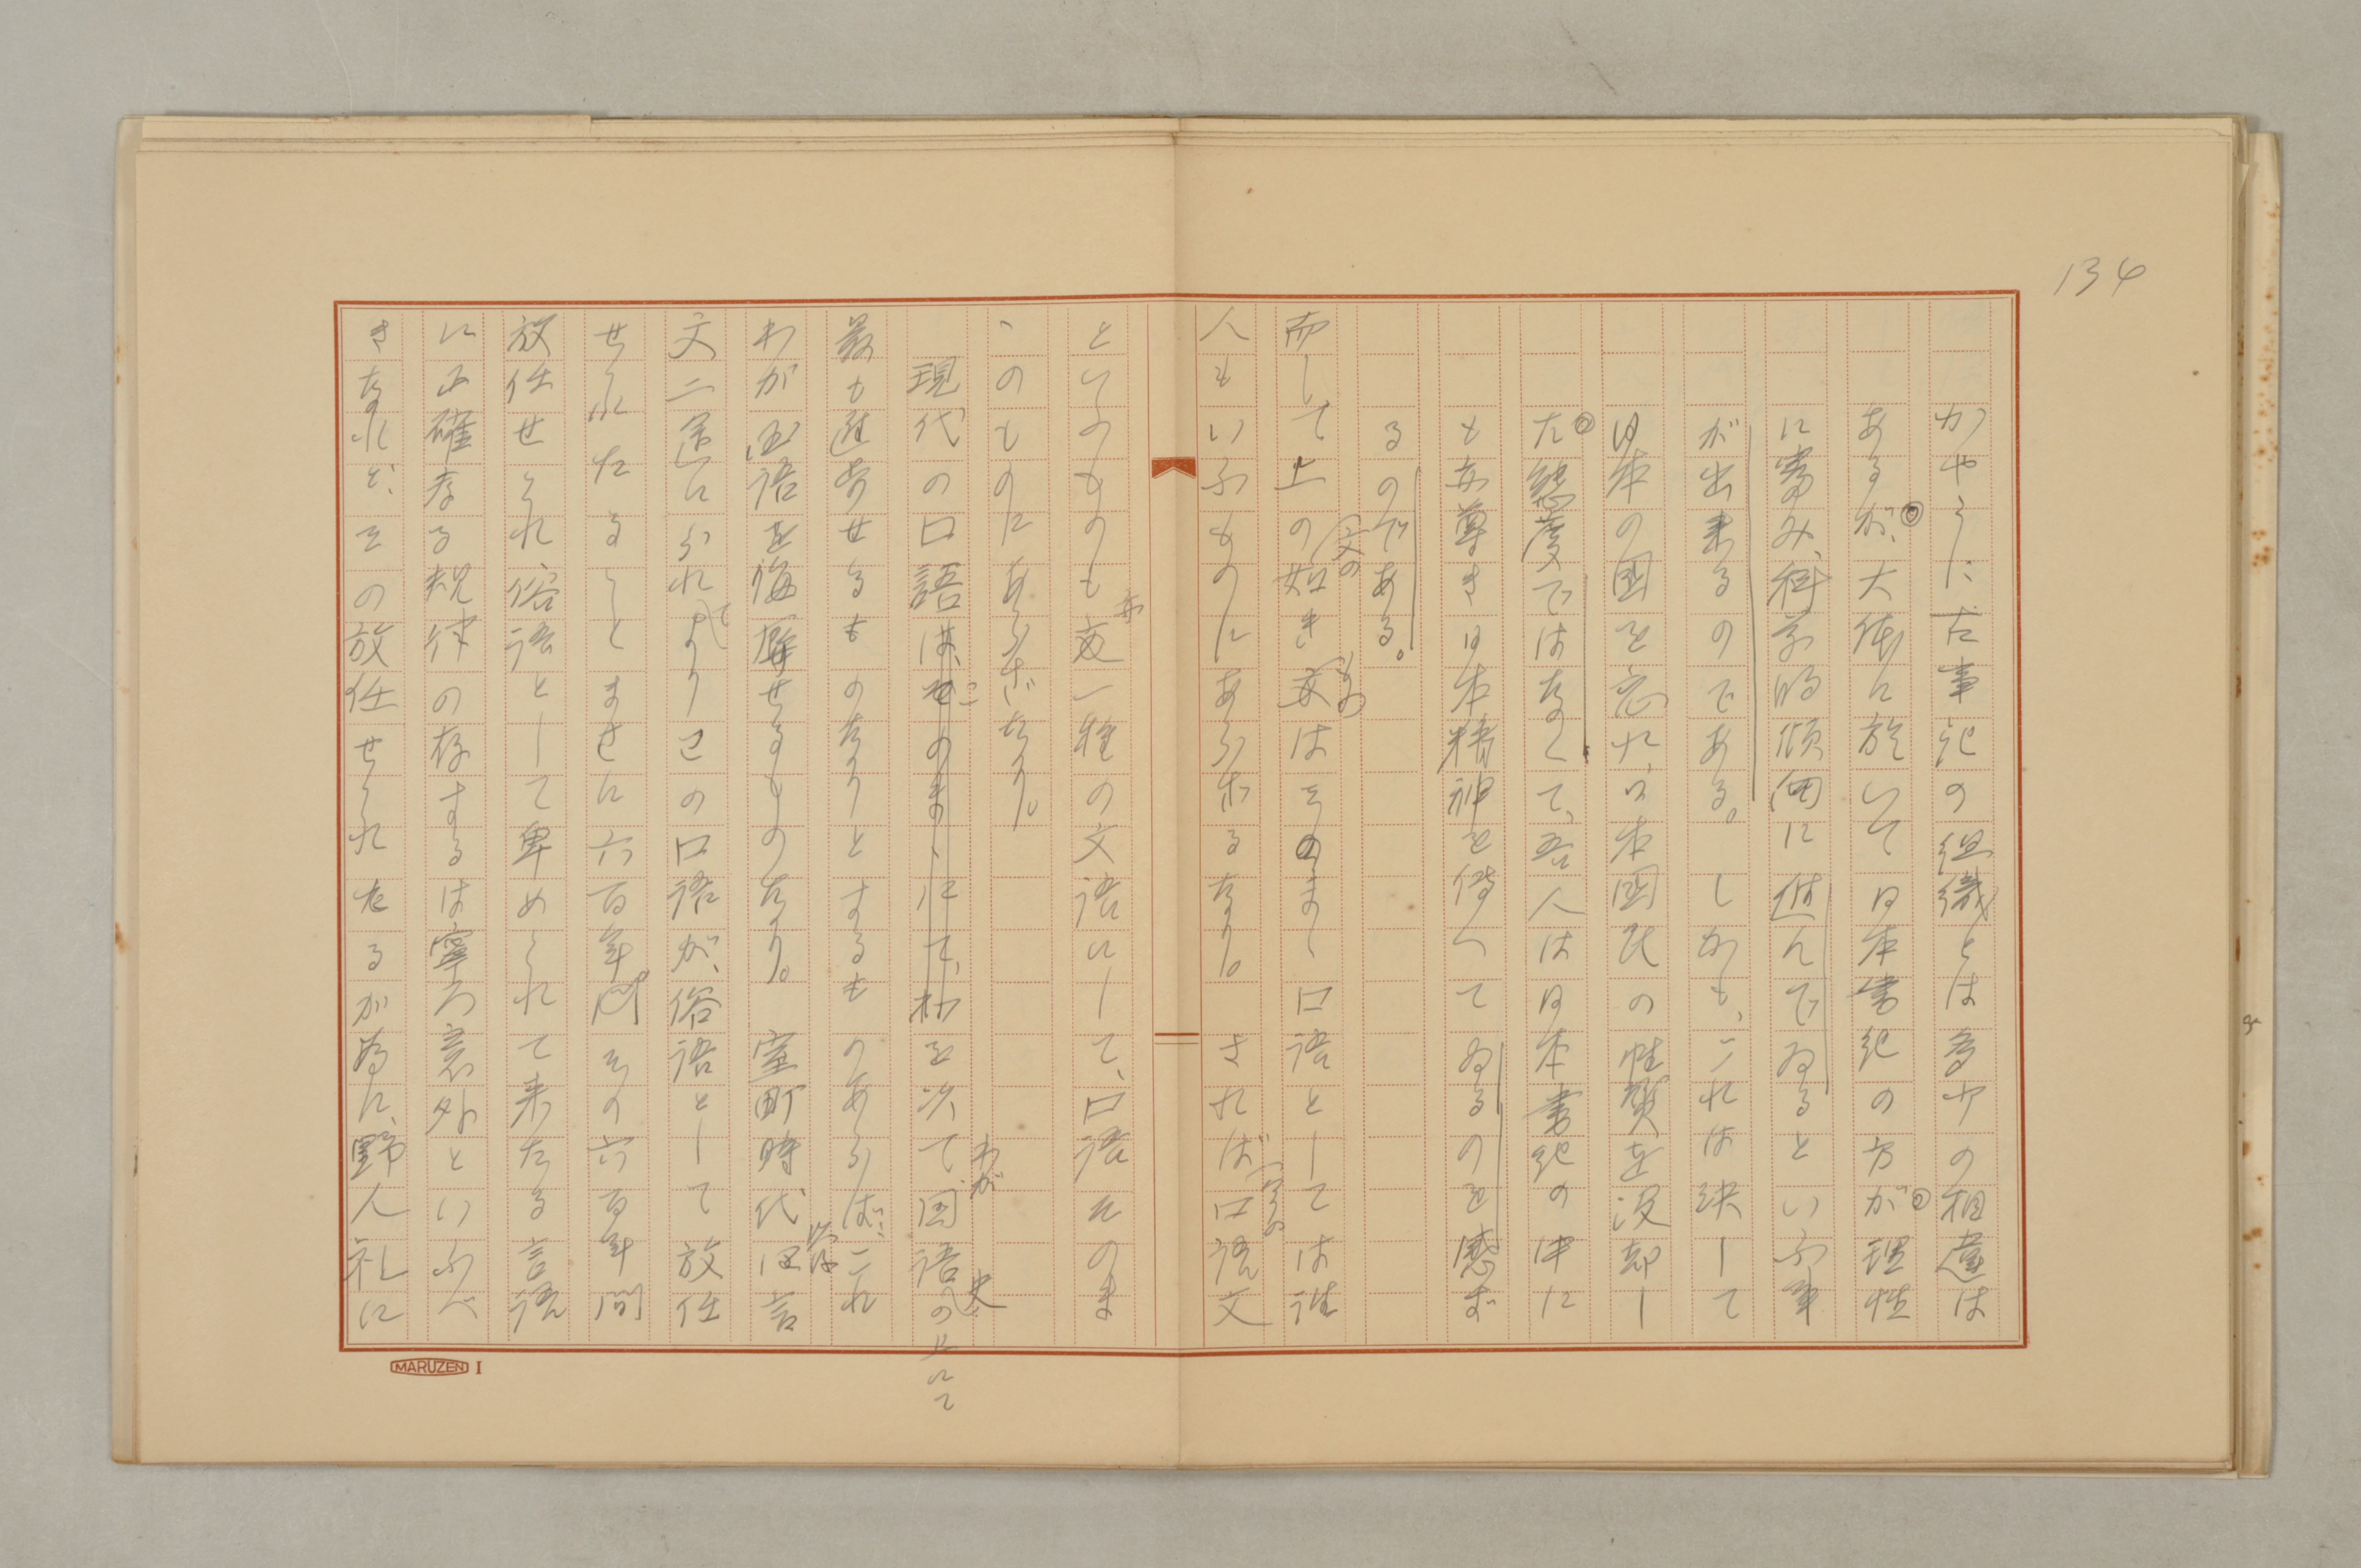 134
かやうに古事記の組織とは多少の相違は
あるが、大体に於いて日本書紀の方が理性
に富み、科学的傾向に進んでゐるといふ事
が出来るのである。しかも、これは決して
日本の国を忘れ、日本国民の性質を没却し
た態度ではなくて、吾人は日本書紀の中に
も亦尊き日本精神を備へてゐるのを感ず
るのである。
而して上の如き文はそのまゝ口語としては誰
人もいふものにあらざるなり。されば口語文
といふものも亦一種の文語にして、口語そのま
ゝのものにあらざるなり。
現代の口語は、そのまゝにて、わが国語の史上にて
最も進歩せるものなりとするものあらば、これ
わが国語を侮辱せるものなり。室町時代以後言
文二途に分れてよりこの口語が、俗語として放任
せられたることまさに六百年間その六百年間
放任せられ俗語として卑められて来たる言語
に正確なる規律の存するは寧ろ意外といふべ
きなれど、その放任せられたるが為に、野人礼に
MARUZEN I